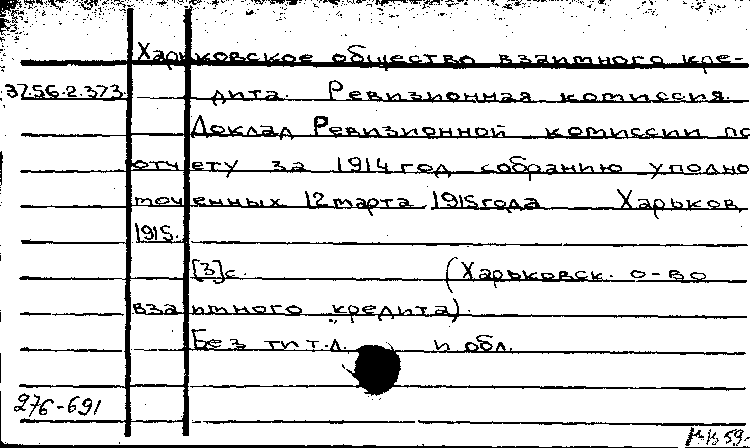 Харьковское общество взаимного кре-
37.56.2.373. дита. Ревизионная комиссия.
Доклад Ревизионной комиссии по
отчету за 1914 год собранию уполно
моченных 12 марта 1915 года Харьков,
1915.
[3]с. (Харьковск. о-во
взаимного кредита).
Без тит.л. и обл.
276-691